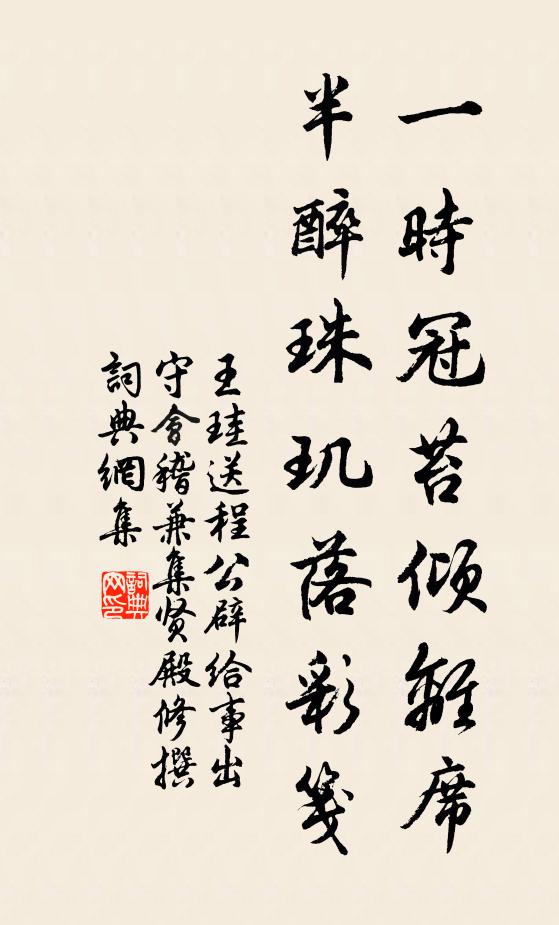 一時冠苔傾離席
半醉珠玑落彩箋
王珪送程公辟给事出
守會稽兼集贤殿修撰
詞典網集
詞典网印